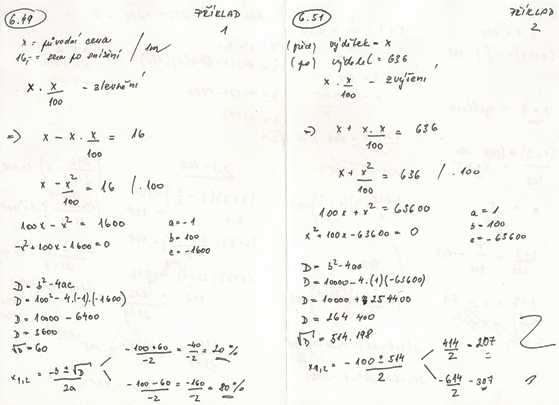 6.49
PŘÍKLAD
1
x = původní cena
16,- = cena po snížení
x · x/100 - zlevnění
=> x - x · x/100 = 16
x - x²/100 = 16 / · 100
100x - x² = 1600
-x² + 100x - 1600 = 0
a = -1
b = 100
c = -1600
D = b² - 4ac
D = 100² - 4 · (-1) · (-1600)
D = 10000 - 6400
D = 3600
√D = 60
x1,2 = -b ± √D / 2a
-100+60/-2 = -40/-2 = 20 %
-100-60/-2 = -160/-2 = 80 %
6.51
PŘÍKLAD
2
(před) výdělek = x
(po) výdělek = 636
x · x/100 - zvýšení
=> x + x · x/100 = 636
x + x²/100 = 636 / · 100
100x + x² = 63600
x² + 100x - 63600 = 0
a = 1
b = 100
c = -63600
D = b² - 4ac
D = 10000 - 4 · (1) (-63600)
D = 10000 + 254400
D = 264 400
√D = 514.198
x1,2 = -100 ± 514 / 2
414/2 = 207
-614/2 = -307